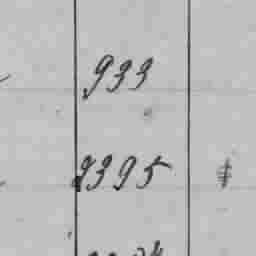 933
2395